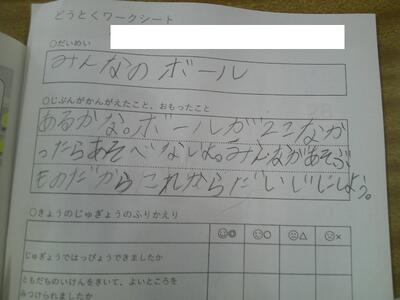 どうとくワークシート
○だいめい
みんなのボール
○じぶんがかんがえたこと、おもったこと
あるかな。ボールがここなか
ったらあそべないよ。みんながあそぶ
ものだからこれからだいじにしよう。
○きょうのじゅぎょうのふりかえり
☺◎ ☺○ ☹△ ☹×
じゅぎょうではっぴょうできましたか
ともだちのいけんをきいて、よいところを
みつけられましたか